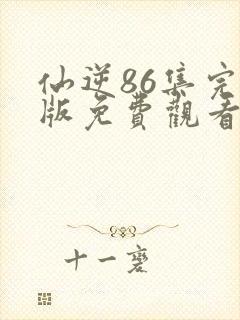 仙逆86集完
版免費觀看
十一麐